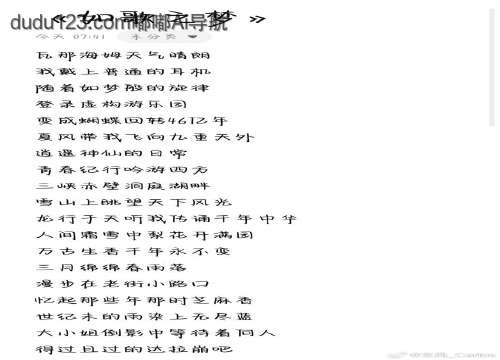 《如歌之梦》
dudu123.com嘟嘟AI导航
今天 07:41 未分类
瓦那海姆天气晴朗
我戴上普通的耳机
随着如梦般的旋律
登录虚构游乐园
变成蝴蝶回转46亿年
夏风带我飞向九重天外
逍遥神仙的日常
青春纪行吟游四方
三峡赤壁洞庭湖畔
雪山上眺望天下风光
龙行于天听我传诵千年中华
人间霜雪中梨花开满园
万古生香千年永不变
三月绵绵春雨落
漫步在老街小路口
忆起那些年那时芝麻香
世纪末的雨染上无尽蓝
大小姐倒影中等待着何人
得过且过的达拉崩吧